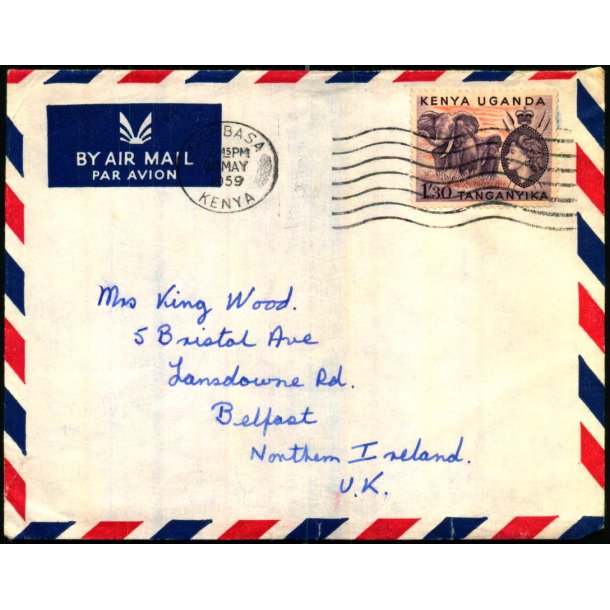 BY AIR MAIL
PAR AVION
BASA
15PM
MAY
1959
KENYA
KENYA UGANDA
1/30 TANGANYIKA
Mrs King Wood.
5 Bristol Ave
Lansdowne Rd.
Belfast
Northern Ireland.
U.K.